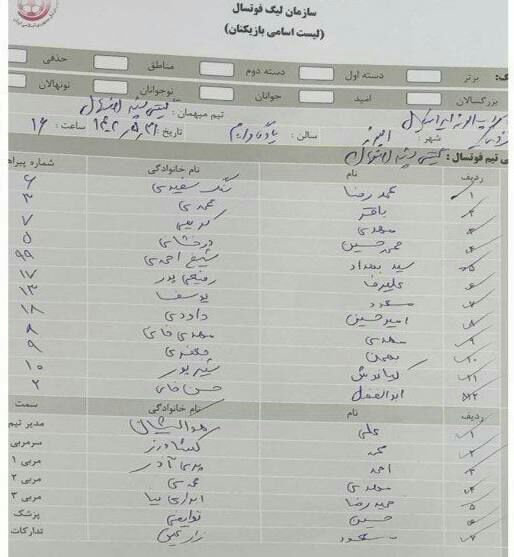 سازمان لیگ فوتسال
(لیست اسامی بازیکنان)
گ: برتر دسته اول دسته دوم مناطق حذفی
بزرگسالان امید جوانان نوجوانان نونهالان
شهر: البرز سالن: تیم میهمان: گیتی پسند اصفهان
تاریخ: ساعت: ۱۶
ی تیم فوتسال: گیتی پسند اصفهان
ردیف نام نام خانوادگی شماره پیراه
۱ محمدرضا سنگ سفیدی ۶
۲ باقر محمدی ۳
۳ مهدی کریمی ۷
۴ محمدحسین درخشانی ۵
۵ سید بهداد شیخ احمدی ۹۹
۶ علیرضا رفیعی پور ۱۷
۷ مسعود یوسف ۱۳
۸ امیرحسین داودی ۱۸
۹ مهدی مهدی خانی ۸
۱۰ بهمن جعفری ۹
۱۱ کیانوش ۱۰
۱۲ ابوالفضل حسن خانی ۲
ردیف نام نام خانوادگی سمت
۱ علی مدیر تیم
۲ کشاورز سرمربی
۳ احمد مربی ۱
۴ مهدی محمدی مربی ۲
۵ حمیدرضا مربی ۳
۶ حسین پزشک
۷ مسعود زارعین تدارکات